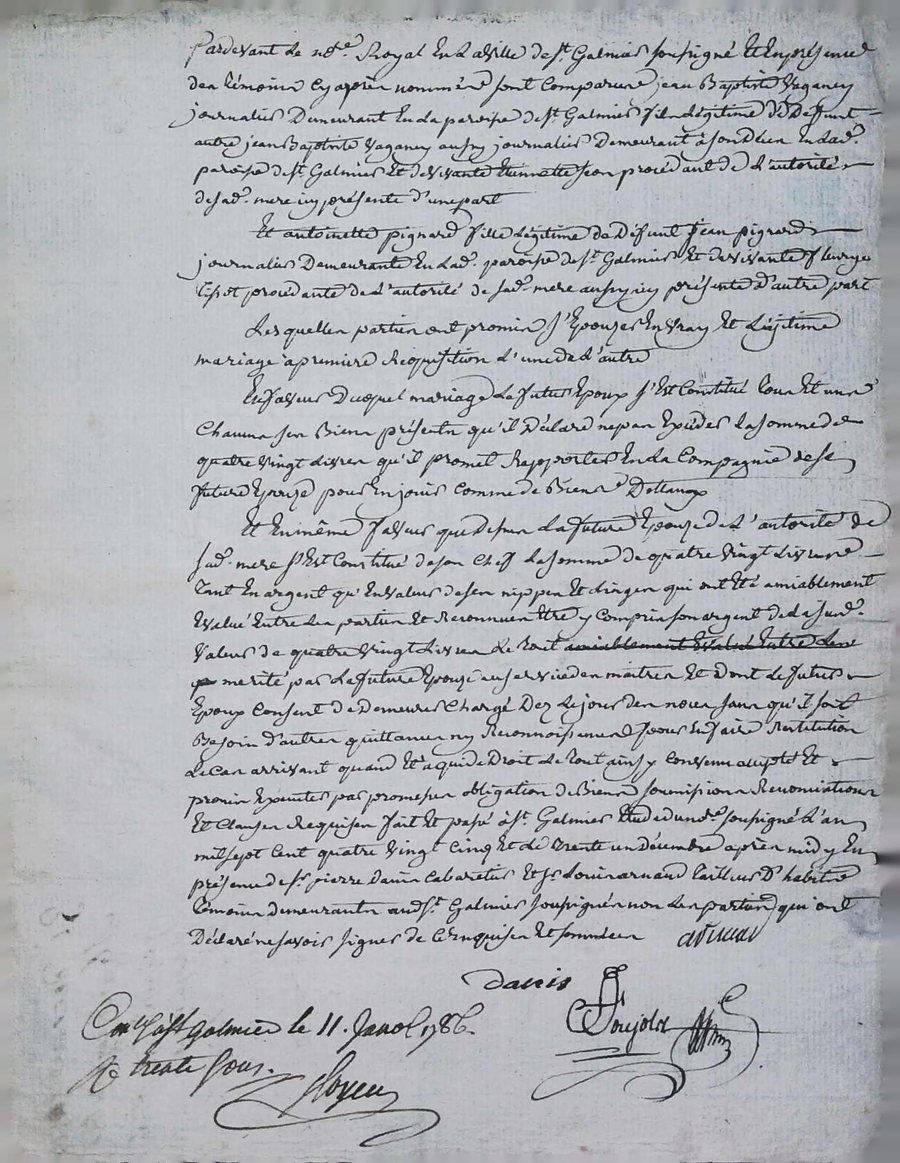 Pardevant Le no.re Royal En la ville de st. Galmier soussigné Et En présence
des témoins Cy après nommés sont Comparus jean Baptiste Vaganey
journalier Demeurant En la paroisse de st. Galmier fils Légitime de Deffunt
autre jean Baptiste Vaganey aussy journalier Demeurant à son Décu En lad.
paroisse de st. Galmier Et de vivante procédant de L'autorité
de sad. mere icy présente d'une part
Et antoinette pignard fille Légitime de Défunt jean pignard
journalier Demeurante En Lad. paroisse de st. Galmier Et de vivante fleurye
procédante de L'autorité de sad. mere aussy icy présente d'autre part
Lesquelles parties ont promis s'Epouser En vray Et Légitime
mariage à premiere Requisition L'une de L'autre
En faveur Duquel mariage Le futur Epoux s'Est Constitué tous Et uns
Chacuns ses Biens présents qu'il Déclare ne pas Exceder La somme de
quatre vingt Livres qu'il promet Rapporter En La Compagnie de sa
future Epouze pour En jouir Comme de Biens Dottaux
Et En même faveur que dessus La future Epouze de L'autorité de
sad. mere s'Est Constitué de son Chef La somme de quatre vingt Livres
tant En argent qu'En valeur de ses nippes Et linges qui ont Eté amiablement
Evalué Entre Les parties Et Reconnues Etre y Compris son argent de la susd.
valeur de quatre vingt Livres Le tout amiablement Evalué Entre Les
p merité par La future Epouze au service des maitres Et Dont Le futur
Epoux Consent de Demeurer Chargé Dez Le jour des noces sans qu'il soit
Besoin d'autres quittances ny Reconnoissances pour En faire Restitution
Le Cas arrivant quand Et à qui de Droit Le tout ainsy Convenu accepté Et
promis Executer par promesses obligation de Biens soumissions Renonciations
Et Clauses Requises fait Et passé à st. Galmier Etude du no.re soussigné L'an
mil sept Cent quatre vingt Cinq Et Le trente un décembre après midy En
présence de sr. pierre Davis Cabaretier Et sr. Louis arnaud tailleur D'habits
témoins demeurants aud. st. Galmier soussignés non Les parties qui ont
Déclaré ne savoir signer de Ce Enquises Et sommées arnaud
Davis
Con.lé à st galmier le 11. Janv. 1786.
Rc trente sous.